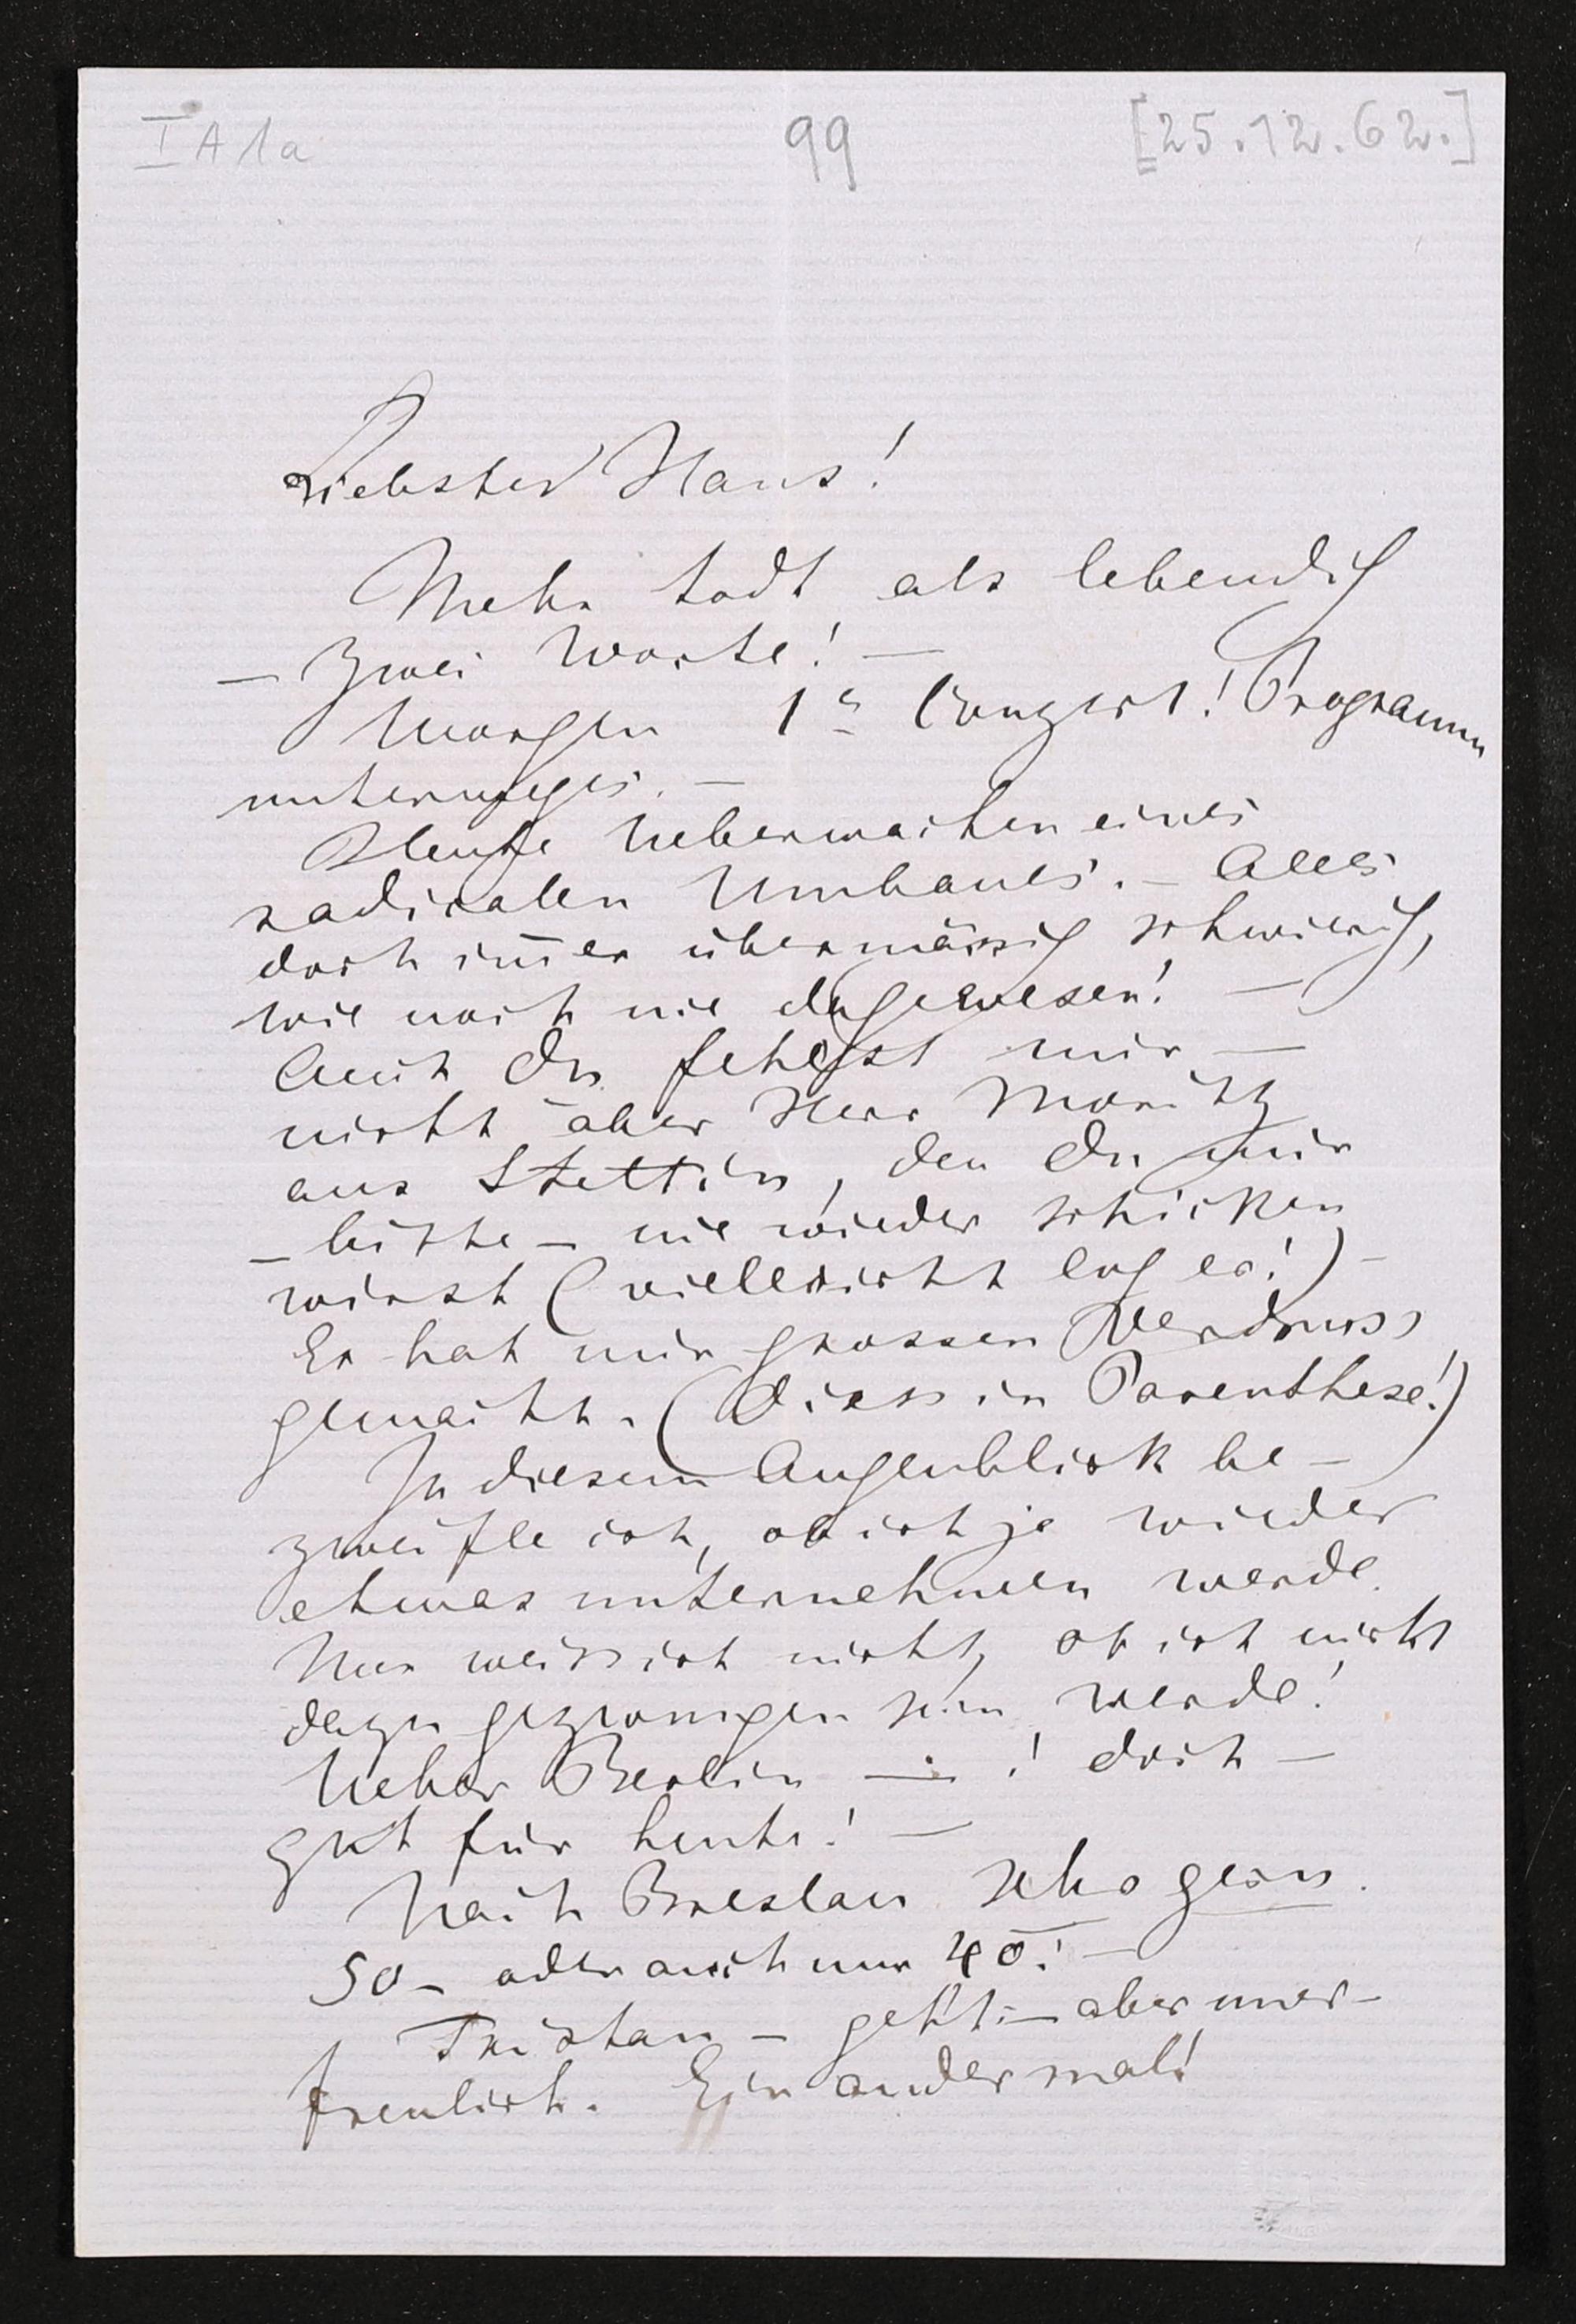 I A 1a 99 [25.12.62.]
Liebster Hans!
Mehr todt als lebendig
— zwei Worte! —
Morgen 1s Conzert! Programm
unterweges. —
Heute Ueberwachen eines
radicalen Umbaues. — Alles
doch im̄er übermässig schwierig,
wie noch nie dagewesen! —
Auch Du fehlst mir —
nicht aber Herr Moritz
aus Stettin, den Du mir
— bitte — nie wieder schicken
wirst (vielleicht log er!) —
Er hat mir grossen Verdruss
gemacht. (Diess in Parenthese!)
In diesem Augenblick be-
zweifle ich, ob ich je wieder
etwas unternehmen werde.
Nur weiss ich nicht, ob ich nicht
dazu gezwungen sein werde!
Ueber Berlin — ! doch —
gut für heute! —
Nach Breslau sehr gern.
50 — oder auch nur 40! —
Tristan — geht: — aber uner-
freulich. Ein andermal!